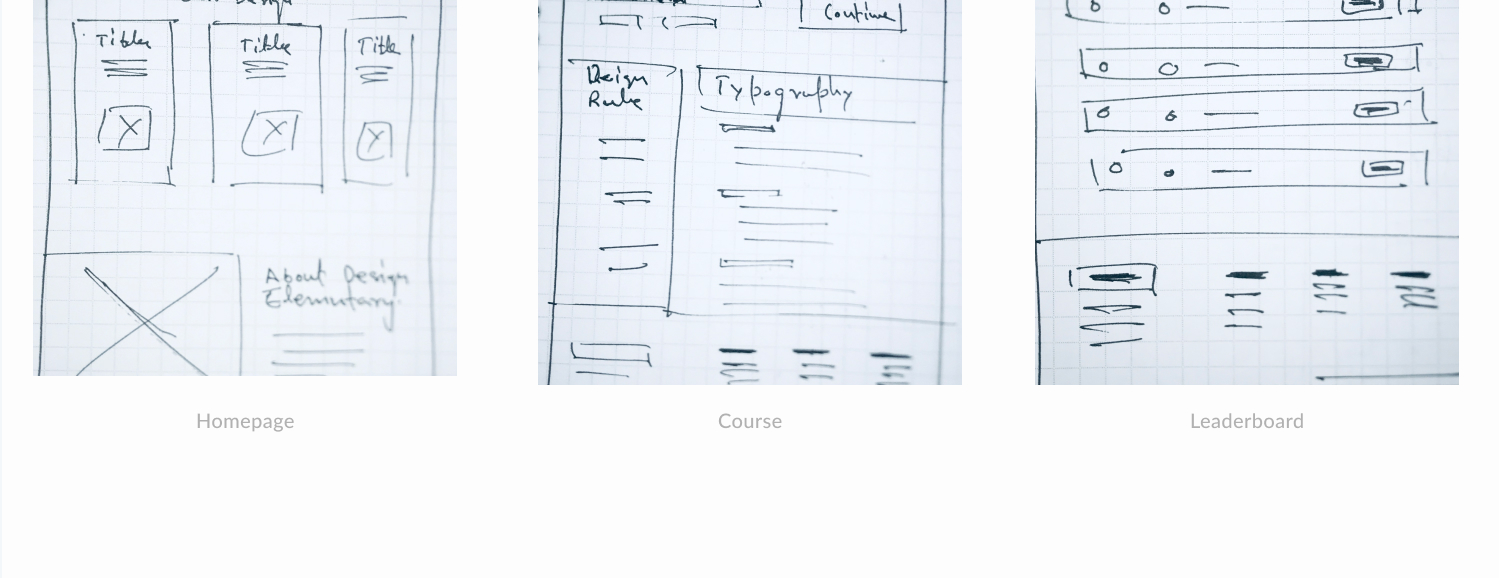 Title
Title
Title
About Design
Elementary.
Continue
Design
Rule
Typography
Homepage
Course
Leaderboard